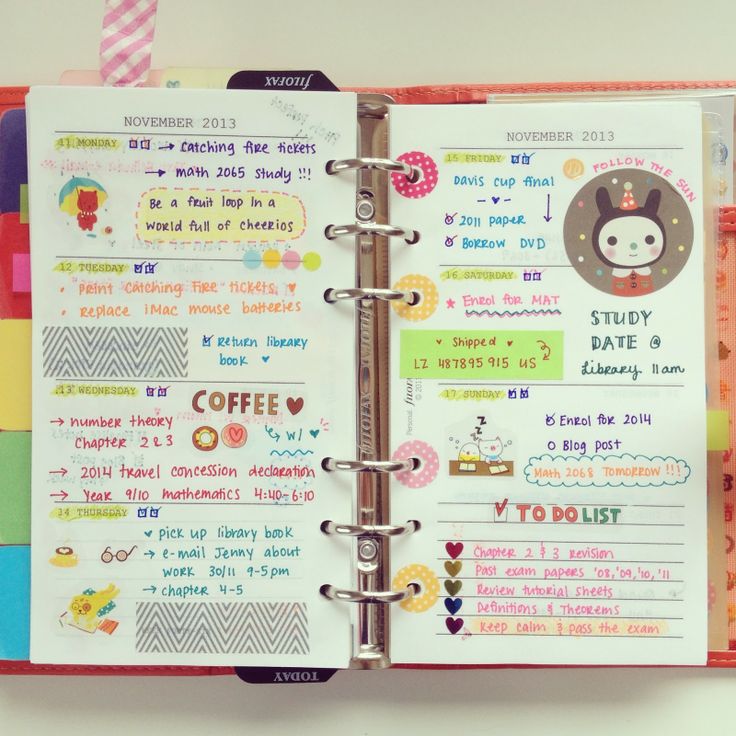 FILOFAX
NOVEMBER 2013
11 MONDAY
→ catching fire tickets
→ math 2065 study !!!
Be a fruit loop in a
world full of cheerios
12 TUESDAY
• print catching fire tickets
• replace iMac mouse batteries
Return library
book ♥
13 WEDNESDAY
COFFEE
w/
→ number theory
chapter 2 & 3
→ 2014 travel concession declaration
→ Year 9/10 mathematics 4:40-6:10
14 THURSDAY
pick up library book
→ e-mail Jenny about
work 30/11 9-5pm
→ chapter 4-5
TODAY
NOVEMBER 2013
15 FRIDAY
Davis cup final
2011 paper
Borrow DVD
FOLLOW THE SUN
16 SATURDAY
★ Enrol for MAT
STUDY
DATE @
Library 11am
♥ Shipped ♥
LZ 487895 915 US
17 SUNDAY
z z z
Enrol for 2014
O Blog post
Math 2068 TOMORROW !!!
TO DO LIST
Chapter 2 & 3 revision
Past exam papers '08,'09,'10,'11
Review tutorial sheets
Definitions & Theorems
keep calm & pass the exam
Personal